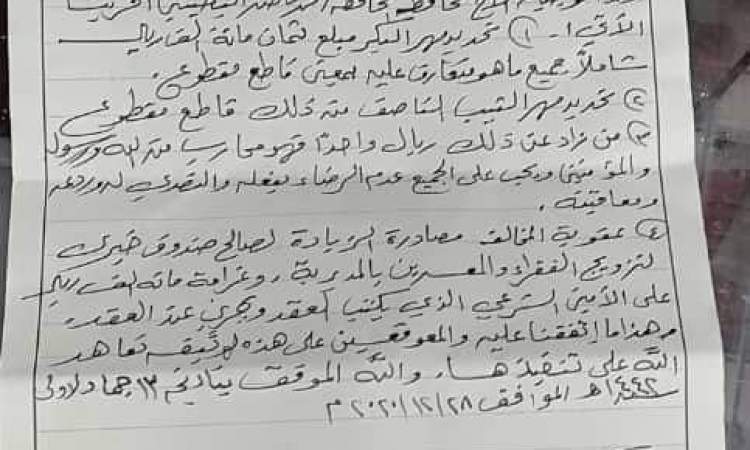 الآتي: ١) تحديد مهر البكر مبلغ ثمان مائة الف ريال
شاملاً جميع ما هو متعارف عليه بمعنى قاطع مقطوع.
٢) تحديد مهر الثيب المناصف من ذلك قاطع مقطوع
٣) من زاد عن ذلك ريال واحداً فهو محارب من الله ورسوله
والمؤمنين ويجب على الجميع عدم الرضاء بفعله والتصدي له وردعه
ومعاقبته.
٤) عقوبة المخالف مصادرة الزيادة لصالح صندوق خيري
لتزويج الفقراء والمعسرين بالمديرية، وغرامة مائة الف ريال
على الأمين الشرعي الذي يكتب العقد ويجري عقد العقد.
وهذا ما إتفقنا عليه والموقعين على هذه الوثيقة تعاهد
الله على تنفيذها. والله الموفق بتاريخ ١٣ جماد لاولى
١٤٤٢هـ الموافق ٢٠٢٠/١٢/٢٨م